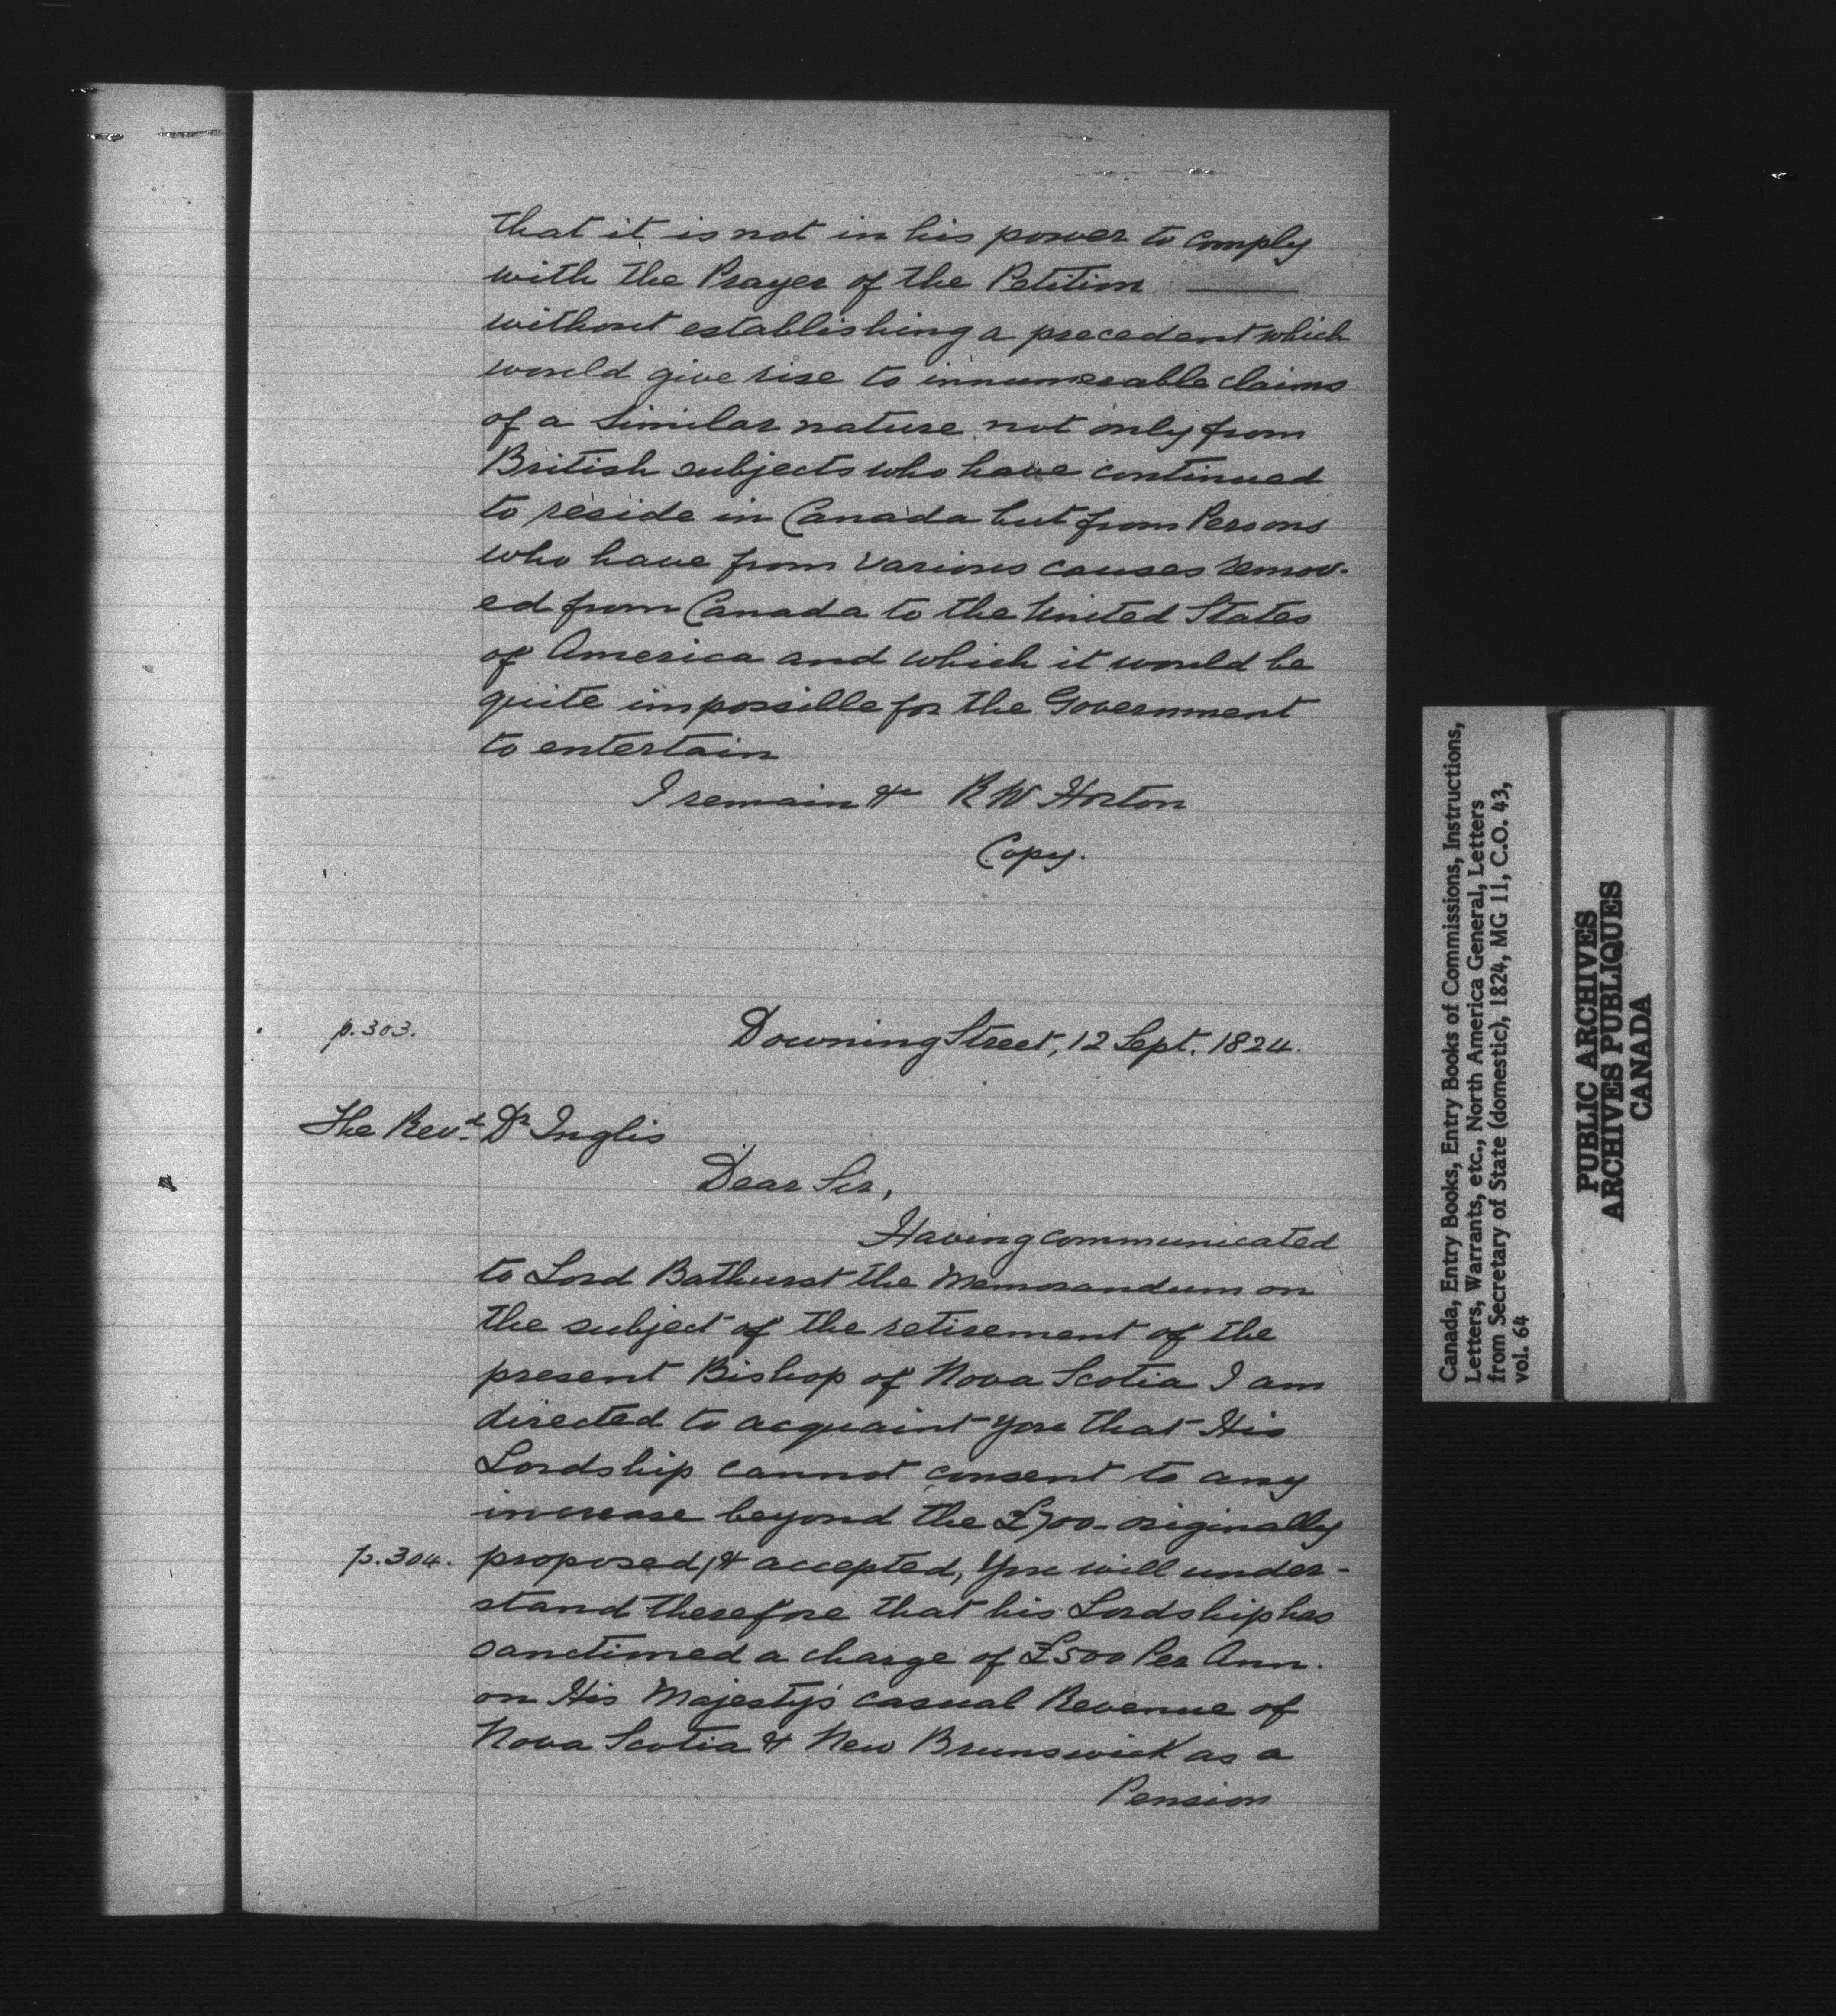 that it is not in his power to comply
with the Prayer of the Petition ———
without establishing a precedent which
would give rise to innumerable claims
of a similar nature not only from
British subjects who have continued
to reside in Canada but from Persons
who have from various causes remov-
ed from Canada to the United States
of America and which it would be
quite impossible for the Government
to entertain
I remain &c R W Horton
Copy.
p. 303.
Downing Street, 12 Sept. 1824.
The Revd. Dr Inglis
Dear Sir,
Having communicated
to Lord Bathurst the Memorandum on
the subject of the retirement of the
present Bishop of Nova Scotia I am
directed to acquaint you that His
Lordship cannot consent to any
increase beyond the £700 - originally
p. 304. proposed, & accepted, You will under-
stand therefore that his Lordship has
sanctioned a charge of £500 Per Ann.
on His Majesty's casual Revenue of
Nova Scotia & New Brunswick as a
Pension
Canada, Entry Books, Entry Books of Commissions, Instructions,
Letters, Warrants, etc., North America General, Letters
from Secretary of State (domestic), 1824, MG 11, C.O. 43,
vol. 64
PUBLIC ARCHIVES
ARCHIVES PUBLIQUES
CANADA